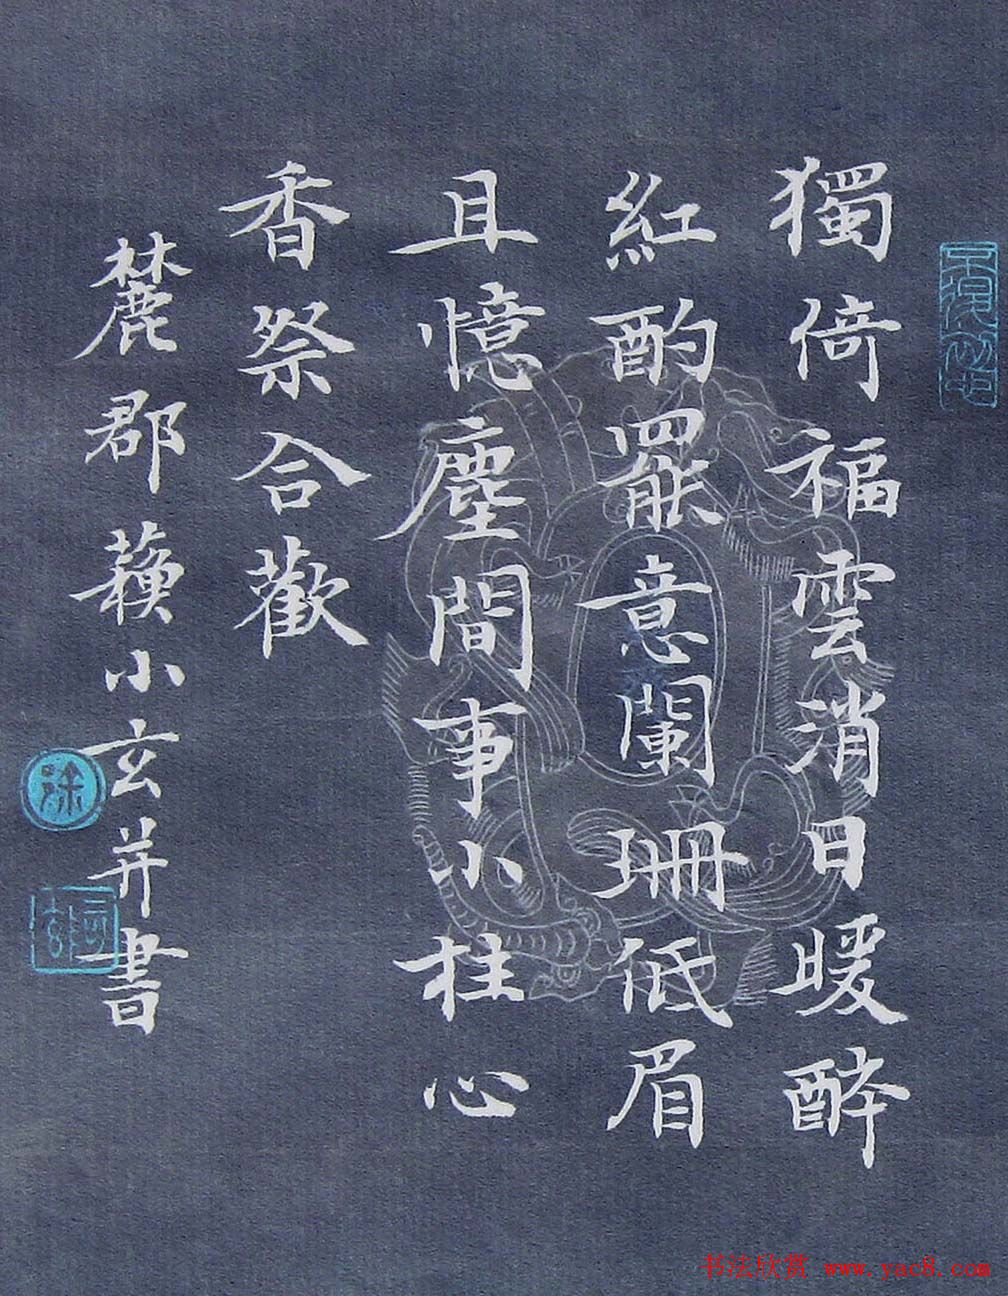 獨倚福雲消日暖醉
紅酌罷意闌珊低眉
且憶塵間事小柱心
香祭合歡
麓郡蘋小玄并書
徐
书法欣赏 www.yac8.com